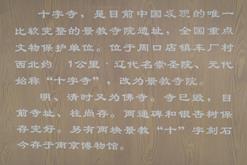 十字寺，是目前中国发现的唯一
比较完整的景教寺院遗址，全国重点
文物保护单位。位于周口店镇车厂村
西北约 1公里，辽代名崇圣院、元代
始称“十字寺”，改为景教寺院。
明、清时又为佛寺。寺已毁，目
前寺址、柱尚存。两通碑和银杏树保
存完好。另有两块景教“十”字刻石
今存于南京博物馆。